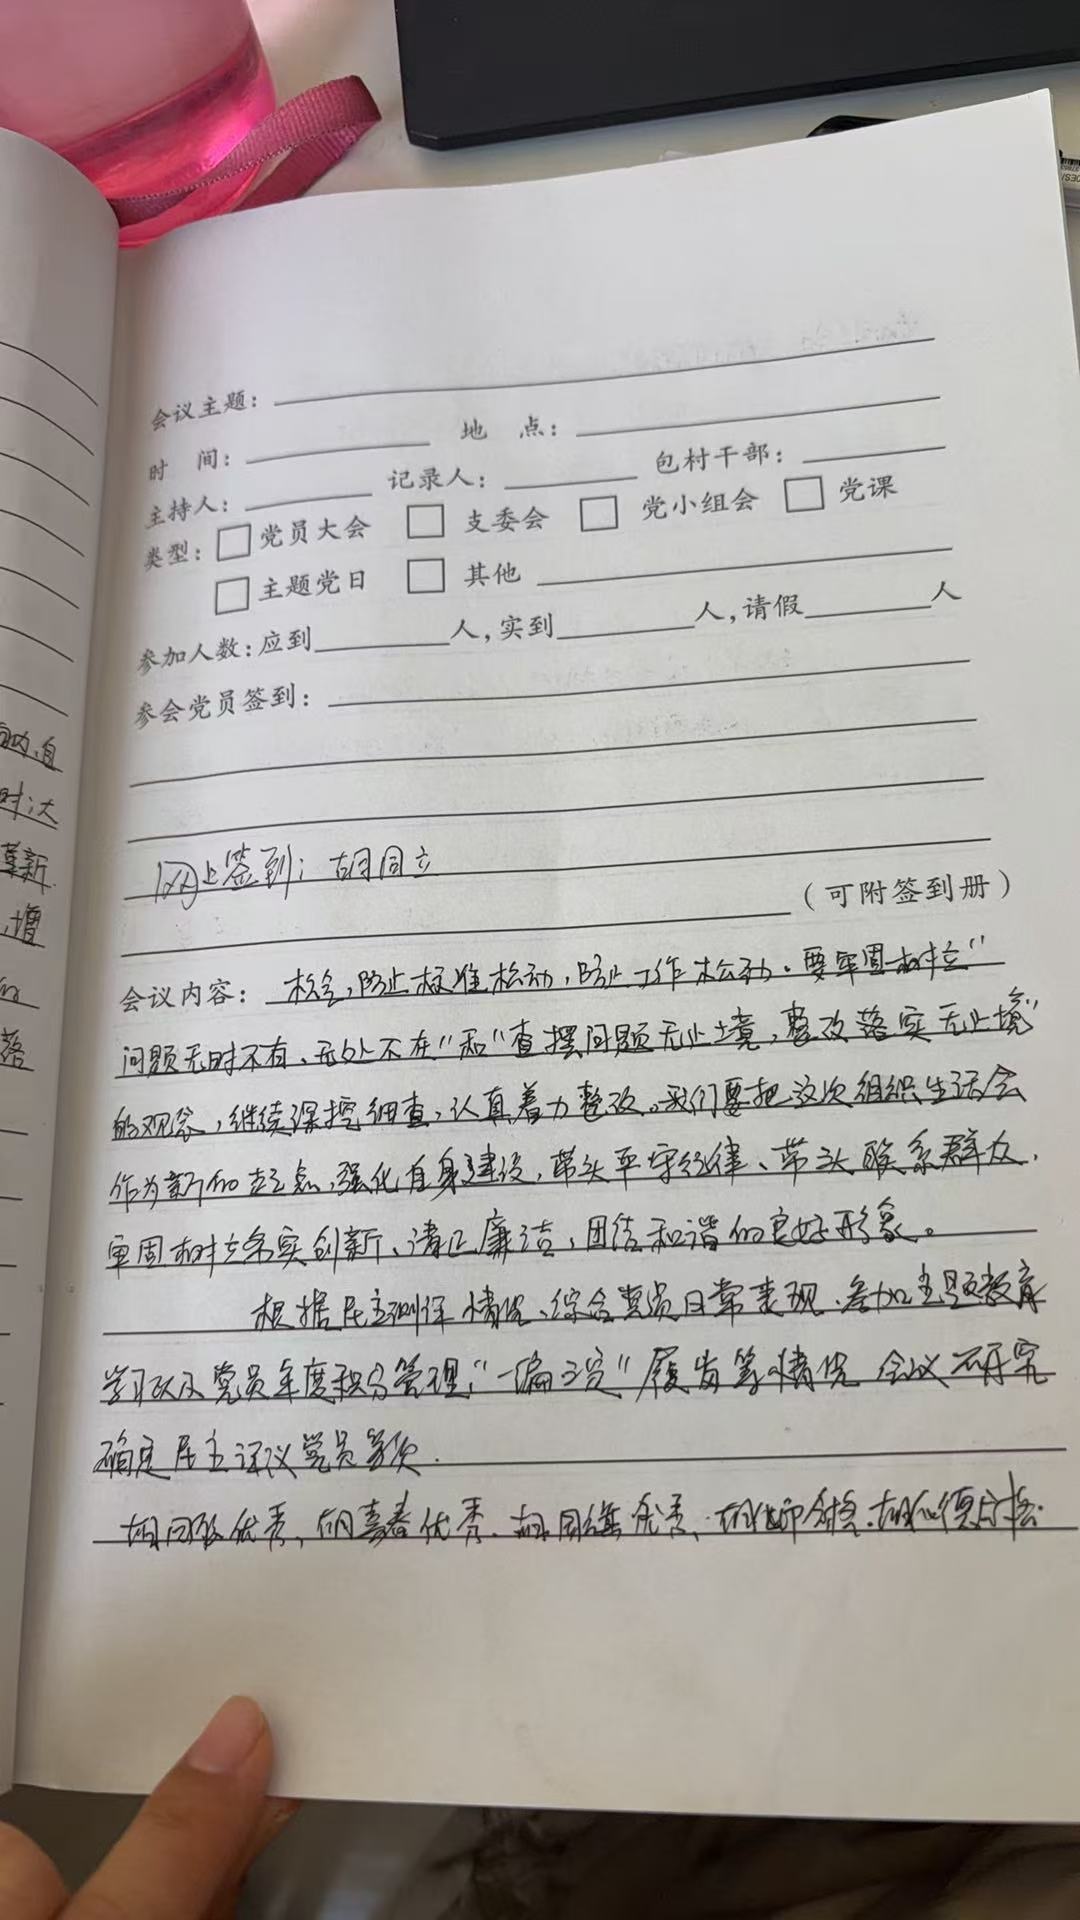 会议主题：
时 间： 地 点：
主持人： 记录人： 包村干部：
类型：□党员大会 □支委会 □党小组会 □党课
□主题党日 □其他
参加人数：应到 人，实到 人，请假 人
参会党员签到：
网上签到：胡同立
（可附签到册）
会议内容： 松气，防止标准松动，防止工作松劲。要牢固树立“
问题无时不有、无处不在”和“查摆问题无止境，整改落实无止境”
的观念，继续深挖细查，认真着力整改。我们要把这次组织生活会
作为新的起点，强化自身建设，带头严守纪律、带头联系群众，
牢固树立务实创新、清正廉洁、团结和谐的良好形象。
根据民主测评情况、综合党员日常表现、参加主题教育
学习以及党员年度积分管理，“一编三定”履职等情况 会议研究
确定民主评议党员等次.
优秀，胡喜春优秀. 优秀， 合格.胡 德合格.
自
时
革新
增
的
落